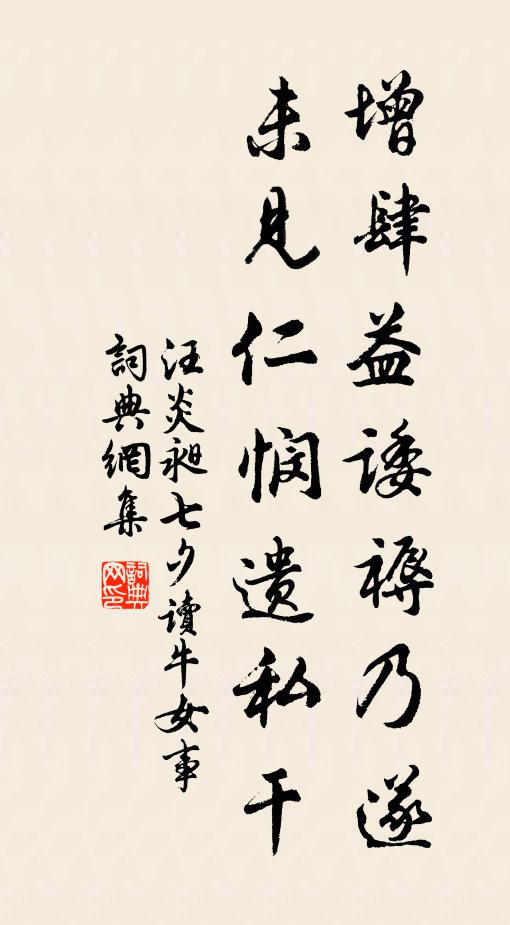 增肆益諉褥乃遂
未見仁憫遺私干
汪炎昶七夕讀牛女事
詞典網集
詞典网印